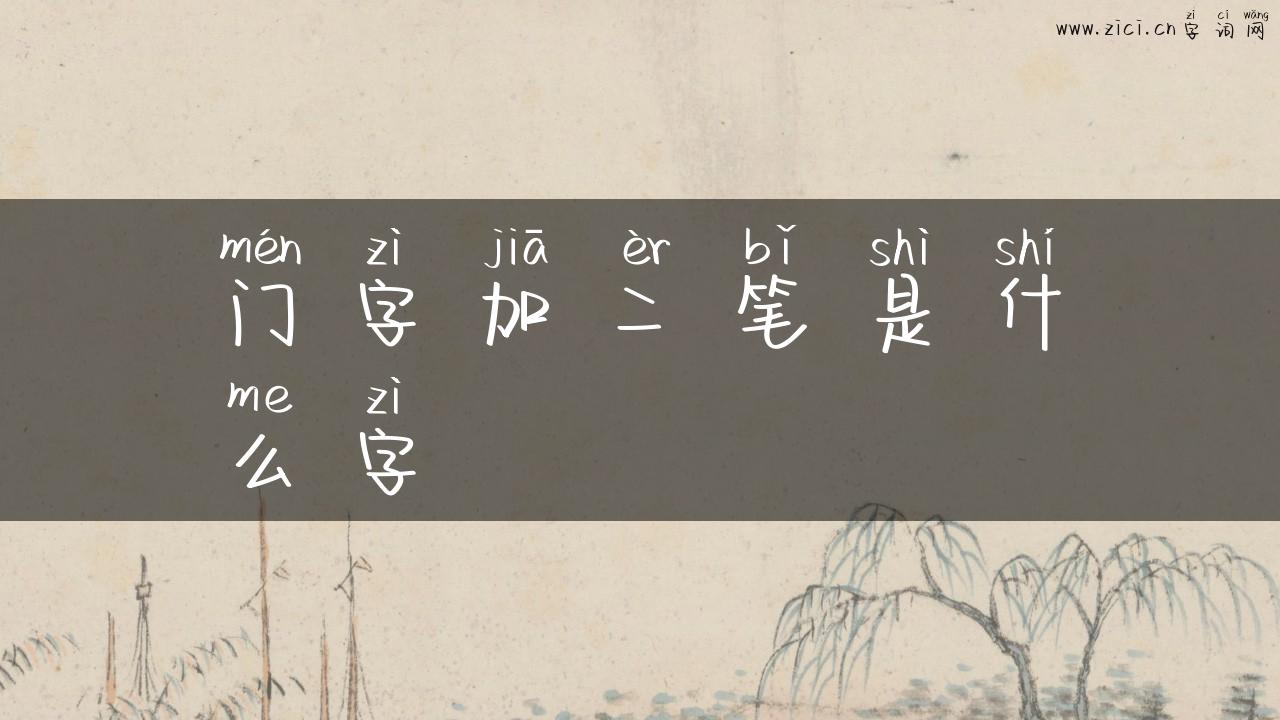 zì cí wǎng
www.zici.cn 字词网
mén zì jiā èr bǐ shì shí
门字加二笔是什
me zì
么字